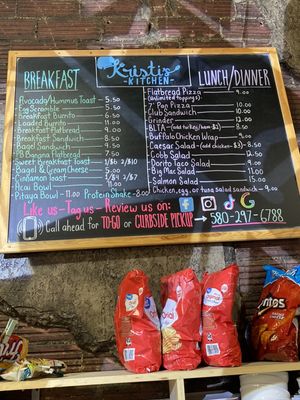 Kristi's
KITCHEN
BREAKFAST
Avocado/Hummus Toast - 5.50
Egg Scramble - 5.50
Breakfast Burrito
Loaded Burrito
Breakfast Flatbread - 9.00
Breakfast Sandwich
Bagel Sandwich
PB Banana Flatbread
Sweet Breakfast Toast 1/$6 2/$10
Bagel & Cream Cheese - 5.00
Cinnamon Toast 1/$4 2/$7
Acai Bowl
Pitaya Bowl - 11.00 Protein Shake - 8.00
LUNCH/DINNER
Flatbread Pizza - 9.00
(unlimited toppings)
7" Pan Pizza - 10.00
Club Sandwich - 10.00
Grinder - 12.00
BLTA - (add turkey/ham $2) 8.50
Buffalo Chicken Wrap
Caesar Salad - (add chicken - $3) - 8.50
Cobb Salad - 12.50
Dorito Taco Salad
Big Mac Salad - 11.00
Salmon Salad - 15.00
Chicken, egg, or tuna salad sandwich - 9.00
Like us - Tag us - Review us on:
Call ahead for TO-GO or CURBSIDE PICKUP → 580-297-6788
Doritos